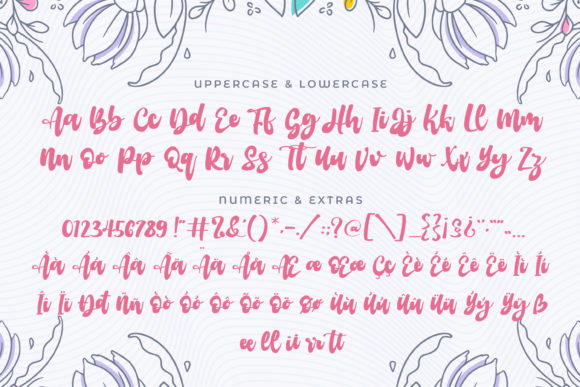 UPPERCASE & LOWERCASE
Aa Bb Cc Dd Ee Ff Gg Hh Ii Jj Kk Ll Mm
Nn Oo Pp Qq Rr Ss Tt Uu Vv Ww Xx Yy Zz
NUMERIC & EXTRAS
0123456789 !"#$%&'()*+,-./:;?@[\]_{}¡§¿
Àà Áá Ââ Ãã Ää Åå Æ æ Œœ Çç Èè Éé Êê Ëë Ìì Íí
Îî Ïï Đđ Ññ Òò Óó Ôô Õõ Öö Øø Ùù Úú Ûû Üü Ýý Ÿÿ ß
ee ll ii rr tt